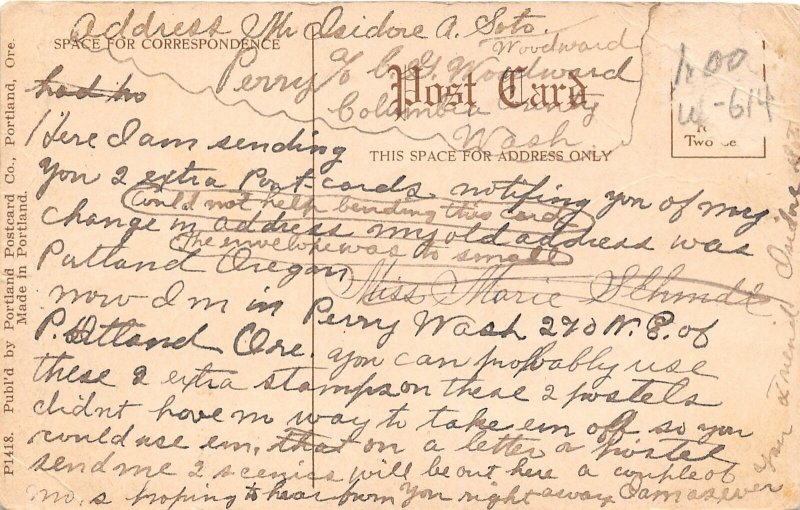 Address Mr Isidore A. Soto.
Perry c/o C. G. Woodward
Woodward
Columbia County
Wash
SPACE FOR CORRESPONDENCE
Post Card
THIS SPACE FOR ADDRESS ONLY
had no
Here I am sending
you 2 extra Post-cards. notifing you of my
Could not help bending this card
change in address my old address was
The envelope was to small
Portland Oregon
Miss Marie Schmidt
now I m in Perry Wash 270 N. E. of
Portland Ore. you can probably use
these 2 extra stamps on these 2 postels
didnt have m way to take em off so you
could use em, that on a letter or postel
send me 2 scenics will be out here a couple of
mo,s hoping to hear from you right away I am as ever
Your Friend Isidore
P1418. Publ'd by Portland Postcard Co., Portland, Ore.
Made in Portland.
1.00
W-614